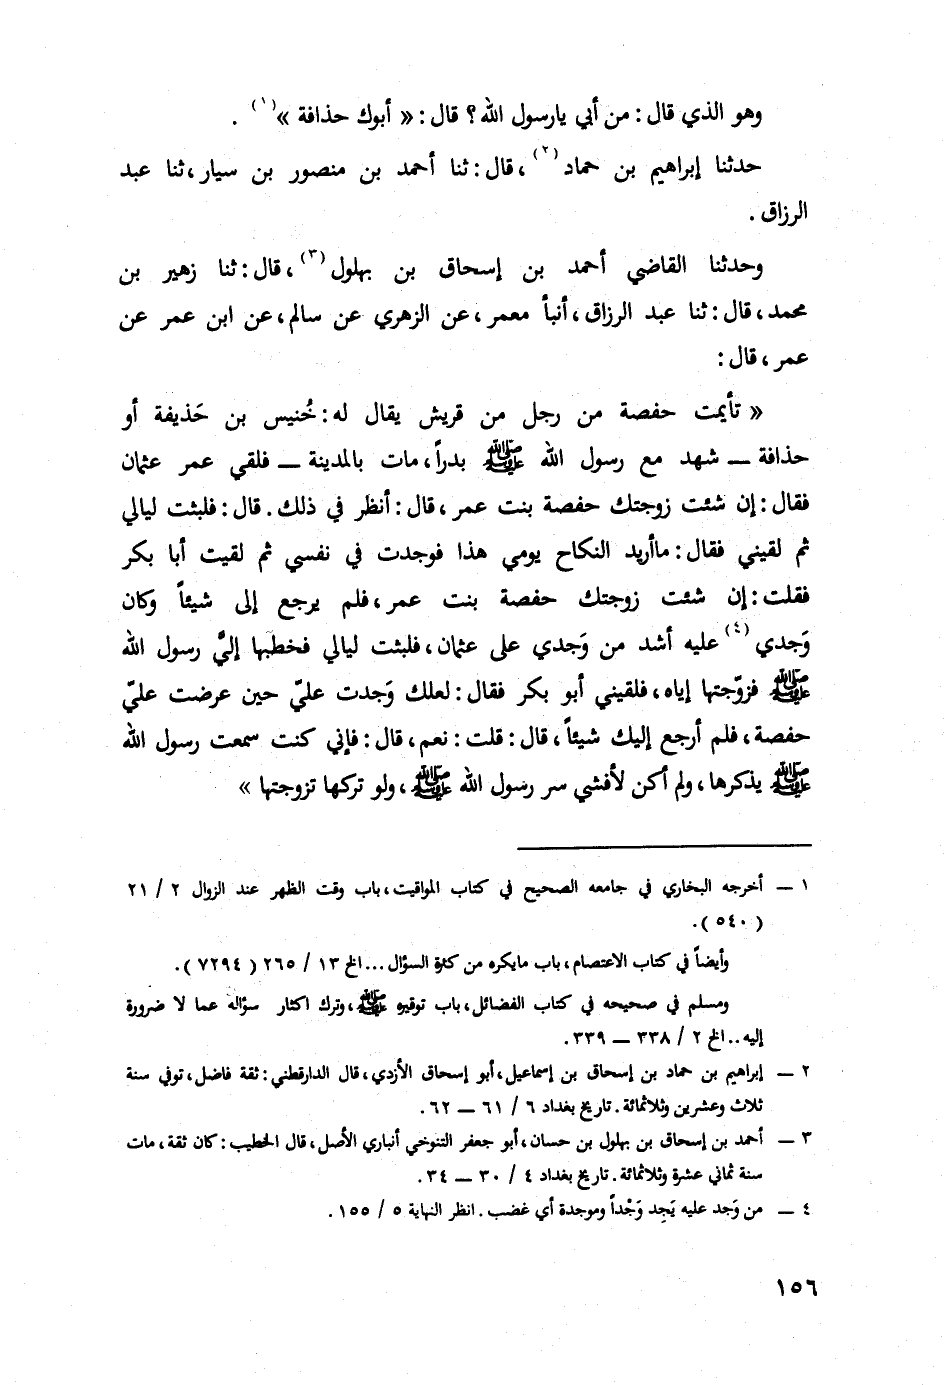 وهو الذي قال : من أبي يارسول الله؟ قال : « أبوك حذافة »(١) .
حدثنا إبراهيم بن حماد(٢) ، قال : ثنا أحمد بن منصور بن سيار ، ثنا عبد
الرزاق .
وحدثنا القاضي أحمد بن إسحاق بن بهلول(٣) ، قال : ثنا زهير بن
محمد ، قال : ثنا عبد الرزاق ، أنبأ معمر ، عن الزهري عن سالم ، عن ابن عمر عن
عمر ، قال :
« تأيمت حفصة من رجل من قريش يقال له : خُنيس بن حَذيفة أو
حذافة — شهد مع رسول الله ﷺ بدراً ، مات بالمدينة — فلقي عمر عثمان
فقال : إن شئت زوجتك حفصة بنت عمر ، قال : أنظر في ذلك . قال : فلبثت ليالي
ثم لقيني فقال : ماأريد النكاح يومي هذا فوجدت في نفسي ثم لقيت أبا بكر
فقلت : إن شئت زوجتك حفصة بنت عمر ، فلم يرجع إلى شيئاً وكان
وَجدي(٤) عليه أشد من وَجدي على عثمان ، فلبثت ليالي فخطبها إليَّ رسول الله
ﷺ فزوّجتها إياه ، فلقيني أبو بكر فقال : لعلك وَجدت عليّ حين عرضت عليّ
حفصة ، فلم أرجع إليك شيئاً ، قال : قلت : نعم ، قال : فإني كنت سمعت رسول الله
ﷺ يذكرها ، ولم أكن لأفشي سر رسول الله ﷺ ، ولو تركها تزوجتها »
١ — أخرجه البخاري في جامعه الصحيح في كتاب المواقيت ، باب وقت الظهر عند الزوال ٢ / ٢١
( ٥٤٠ ) .
وأيضاً في كتاب الاعتصام ، باب مايكره من كثرة السؤال ... الخ ١٣ / ٢٦٥ ( ٧٢٩٤ ) .
ومسلم في صحيحه في كتاب الفضائل ، باب توقيره ﷺ ، وترك اكثار سؤاله عما لا ضرورة
إليه .. الخ ٢ / ٣٣٨ — ٣٣٩ .
٢ — إبراهيم بن حماد بن إسحاق بن إسماعيل ، أبو إسحاق الأزدي ، قال الدارقطني : ثقة فاضل ، توفي سنة
ثلاث وعشرين وثلاثمائة . تاريخ بغداد ٦ / ٦١ — ٦٢ .
٣ — أحمد بن إسحاق بن بهلول بن حسان ، أبو جعفر التنوخي أنباري الأصل ، قال الخطيب : كان ثقة ، مات
سنة ثماني عشرة وثلاثمائة . تاريخ بغداد ٤ / ٣٠ — ٣٤ .
٤ — من وَجد عليه يَجِد وَجْداً وموجدة أي غضب . انظر النهاية ٥ / ١٥٥ .
١٥٦